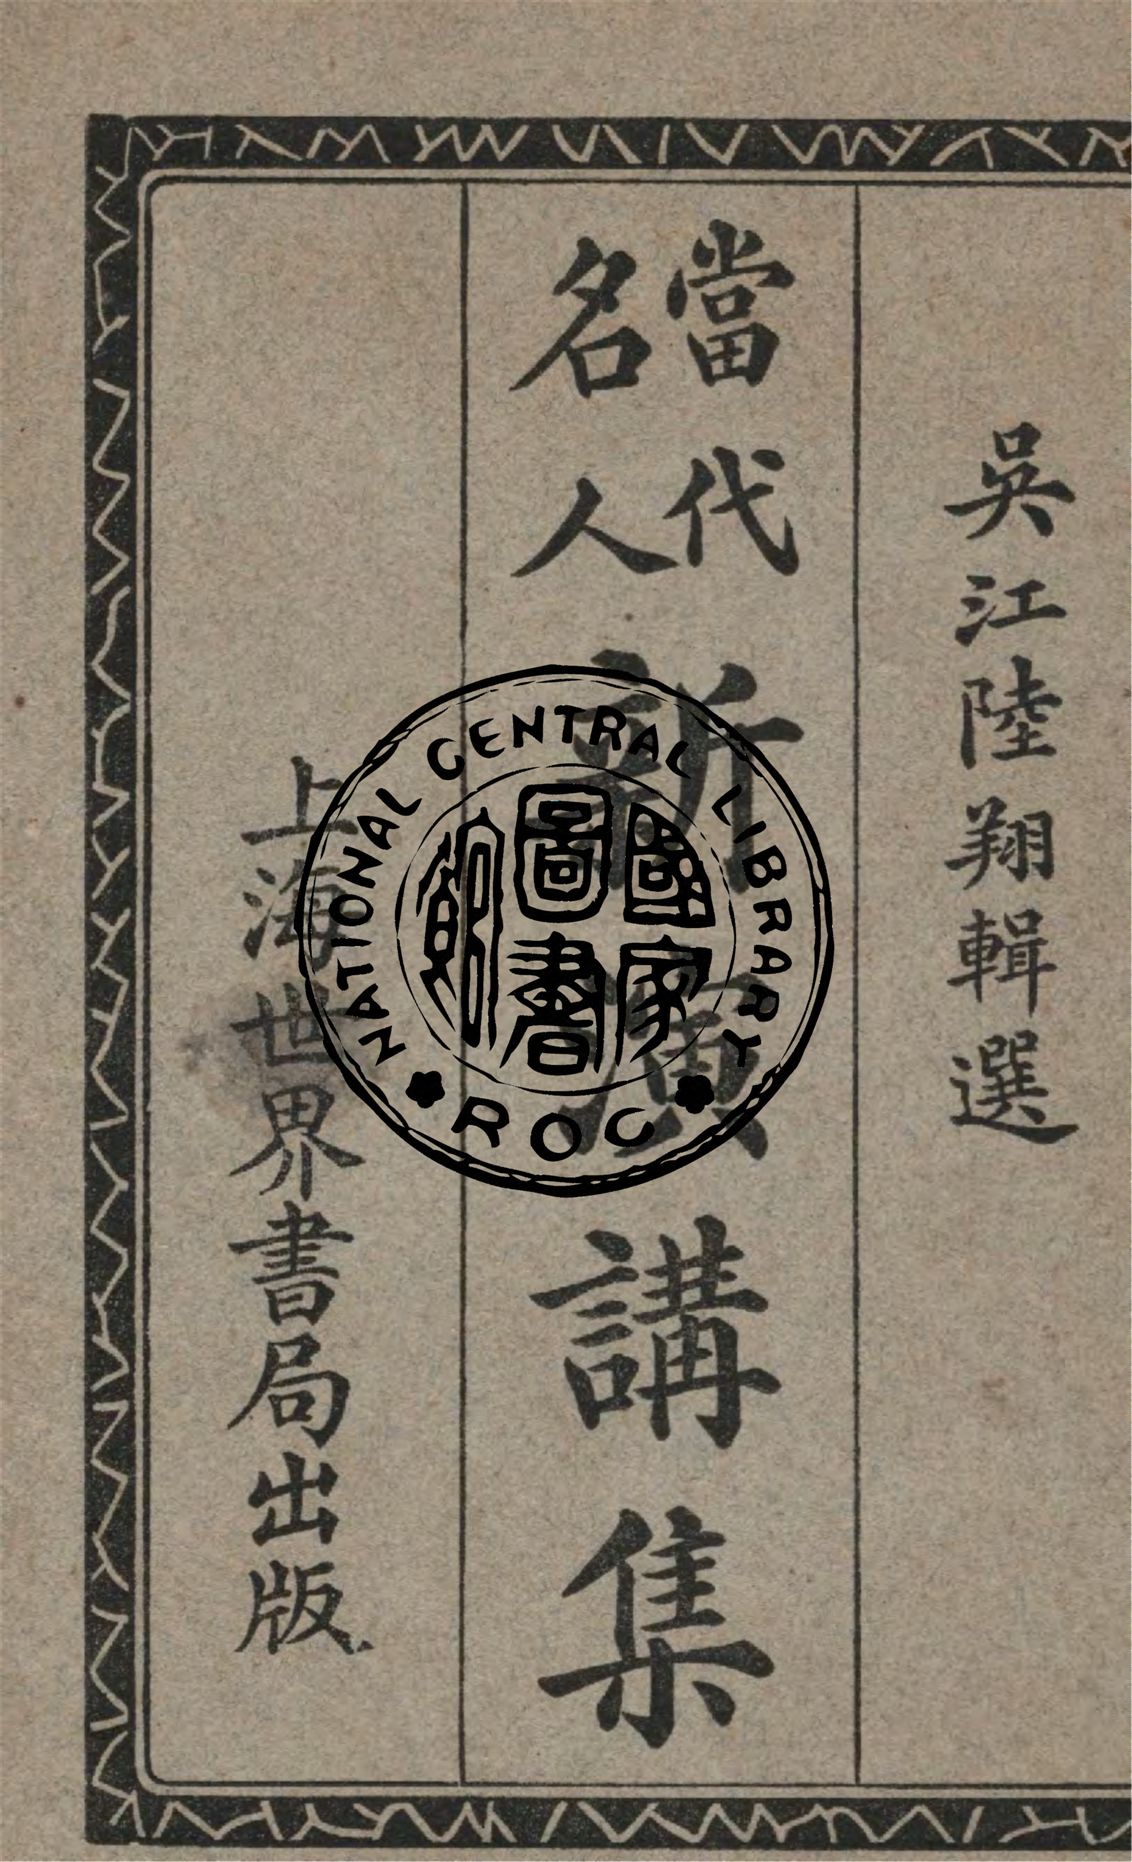 吳江陸翔輯選
當代
名人
新演講集
上海世界書局出版
NATIONAL CENTRAL LIBRARY
ROC
國家
圖書
館